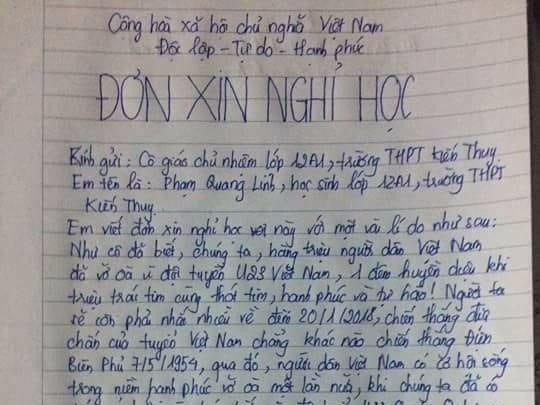 Cộng hoà xã hội chủ nghĩa Việt Nam
Độc lập - Tự do - Hạnh phúc
ĐƠN XIN NGHỈ HỌC
Kính gửi : Cô giáo chủ nhiệm lớp 12A1, trường THPT Kiến Thụy.
Em tên là : Phạm Quang Linh, học sinh lớp 12A1, trường THPT
Kiến Thụy.
Em viết đơn xin nghỉ học này với một vài lí do như sau :
Như cô đã biết, chúng ta, hàng triệu người dân Việt Nam
đã vỡ oà vì đội tuyển U23 Việt Nam, 1 đêm huyền diệu khi
triệu trái tim cùng thổn tim, hạnh phúc và tự hào ! Người ta
sẽ còn phải nhắc nhiều về đêm 20/1/2018, chiến thắng địa
chấn của tuyển Việt Nam chẳng khác nào chiến thắng Điện
Biên Phủ 7/5/1954, qua đó, người dân Việt Nam có cơ hội sống
trong niềm hạnh phúc vỡ oà một lần nữa, khi chúng ta đã có